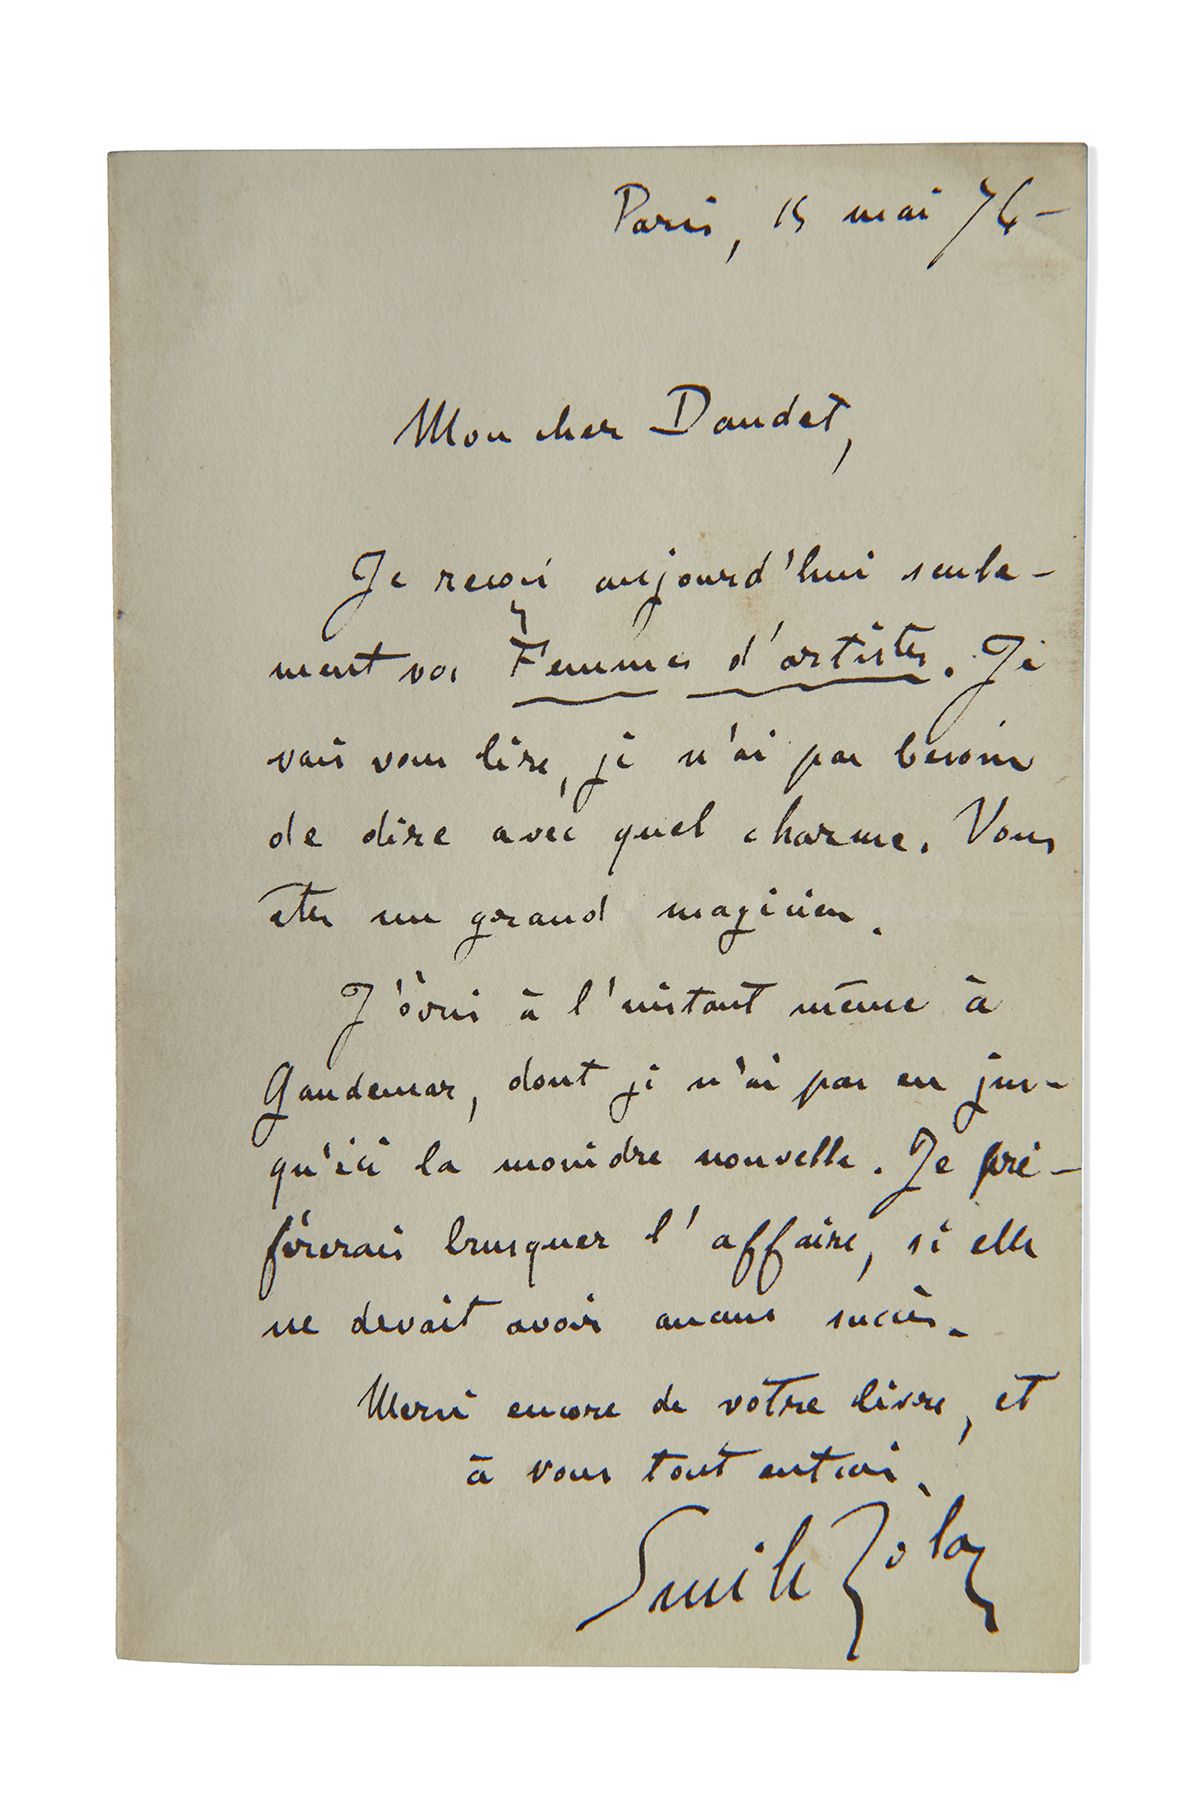 Paris, 15 mai 76-
Mon cher Daudet,
Je reçois aujourd'hui seule-
ment vos Femmes d'artistes. Je
vais vous lire, je n'ai pas besoin
de dire avec quel charme. Vous
êtes un grand magicien.
J'écris à l'instant même à
Gaudemar, dont je n'ai pas eu jus-
qu'ici la moindre nouvelle. Je pré-
férerais brusquer l'affaire, si elle
ne devait avoir aucun succès.
Merci encore de votre livre, et
à vous tout entier.
Emile Zola